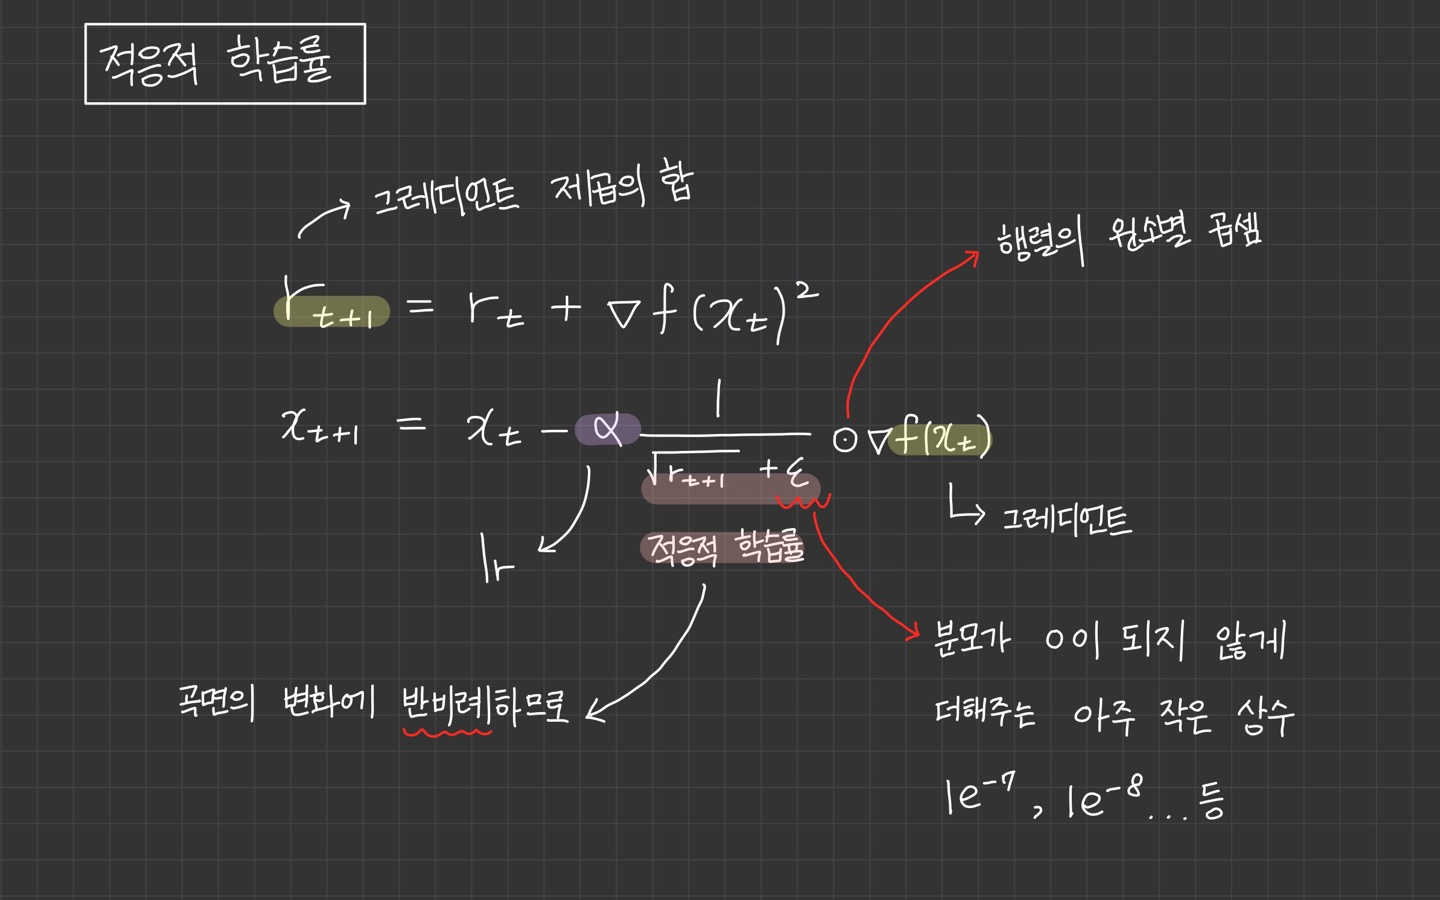 적응적 학습률
그레디언트 제곱의 합
행렬의 원소별 곱셈
r_{t+1} = r_t + ▽f(x_t)²
x_{t+1} = x_t - α 1/(√r_{t+1} + ε) ⊙ ▽f(x_t)
그레디언트
lr
적응적 학습률
분모가 0이 되지 않게
곡면의 변화에 반비례하므로
더해주는 아주 작은 상수
1e⁻⁷, 1e⁻⁸... 등